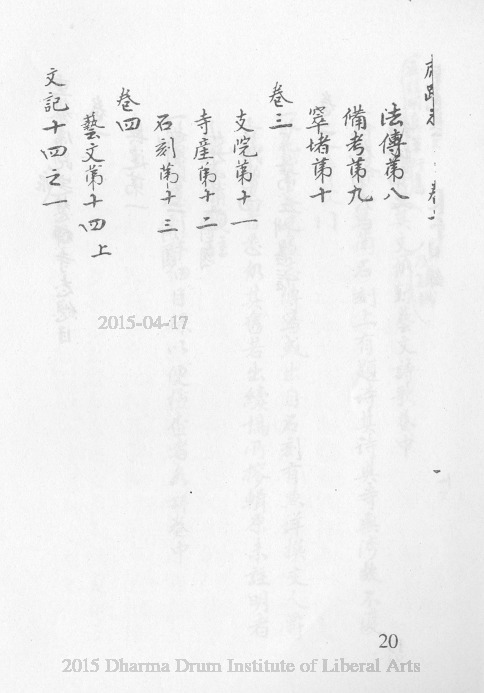 法傳第八
備考第九
窣堵第十
卷三
支院第十一
寺產第十二
石刻第十三
卷四
藝文第十四上
文記十四之一
2015-04-17
20
2015 Dharma Drum Institute of Liberal Arts